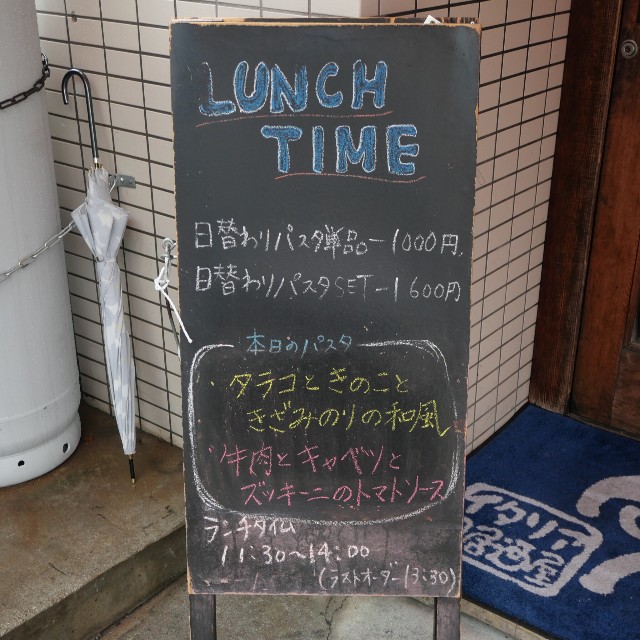 LUNCH
TIME
日替わりパスタ単品ー1000円
日替わりパスタSETー1600円
本日のパスタ
・タラコときのこと
きざみのりの和風
・牛肉とキャベツと
ズッキーニのトマトソース
ランチタイム
11:30〜14:00
(ラストオーダー13:30)
イタリア
居酒屋